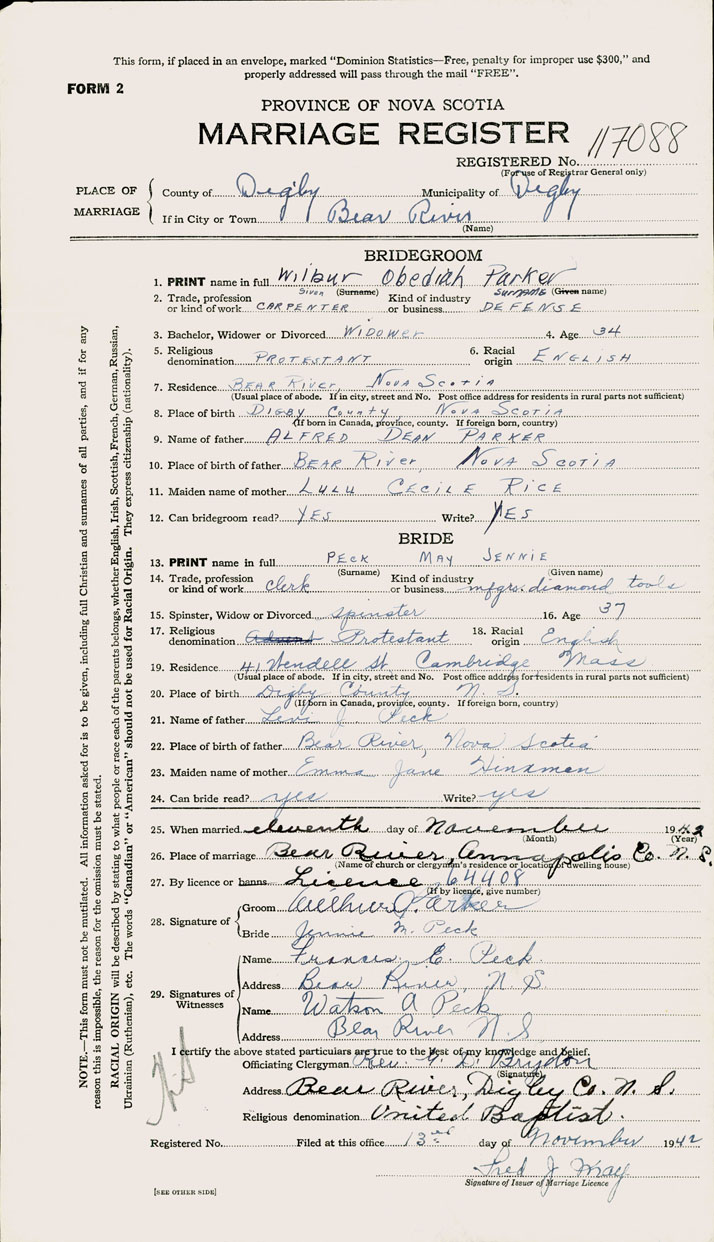 This form, if placed in an envelope, marked "Dominion Statistics—Free, penalty for improper use $300," and
properly addressed will pass through the mail "FREE".
FORM 2
PROVINCE OF NOVA SCOTIA
MARRIAGE REGISTER
117088
REGISTERED No.
(For use of Registrar General only)
PLACE OF MARRIAGE
County of Digby Municipality of Digby
If in City or Town Bear River
(Name)
BRIDEGROOM
1. PRINT name in full Wilbur Obediah Parker
Given (Surname) Surname (Given name)
2. Trade, profession or kind of work CARPENTER Kind of industry or business DEFENSE
3. Bachelor, Widower or Divorced WIDOWER 4. Age 34
5. Religious denomination PROTESTANT 6. Racial origin ENGLISH
7. Residence BEAR RIVER, NOVA SCOTIA
(Usual place of abode. If in city, street and No. Post office address for residents in rural parts not sufficient)
8. Place of birth DIGBY County NOVA SCOTIA
(If born in Canada, province, county. If foreign born, country)
9. Name of father ALFRED DEAN PARKER
10. Place of birth of father BEAR River, NOVA SCOTIA
11. Maiden name of mother LULU CECILE RICE
12. Can bridegroom read? YES Write? YES
BRIDE
13. PRINT name in full PECK MAY JENNIE
(Surname) (Given name)
14. Trade, profession or kind of work clerk Kind of industry or business mfgrs. diamond tools
15. Spinster, Widow or Divorced spinster 16. Age 37
17. Religious denomination Advent Protestant 18. Racial origin English
19. Residence 41 Wendell St. Cambridge, Mass
(Usual place of abode. If in city, street and No. Post office address for residents in rural parts not sufficient)
20. Place of birth Digby County N. S.
(If born in Canada, province, county. If foreign born, country)
21. Name of father Levi J. Peck
22. Place of birth of father Bear River, Nova Scotia
23. Maiden name of mother Emma Jane Hinxman
24. Can bride read? yes Write? yes
25. When married eleventh day of November 1942
(Month) (Year)
26. Place of marriage Bear River, Annapolis Co. N. S.
(Name of church or clergyman's residence or location of dwelling house)
27. By licence or banns Licence 64408
(If by licence, give number)
28. Signature of
Groom Wilbur O. Parker
Bride Jennie M. Peck
29. Signatures of Witnesses
Name Frances E. Peck
Address Bear River, N. S.
Name Watson A Peck
Address Bear River N.S
I certify the above stated particulars are true to the best of my knowledge and belief.
Officiating Clergyman Rev. G. D. Brydon
(Signature)
Address Bear River, Digby Co. N. S.
Religious denomination United Baptist.
Registered No. Filed at this office 13rd day of November 1942
Fred J May
Signature of Issuer of Marriage Licence
[SEE OTHER SIDE]
NOTE.—This form must not be mutilated. All information asked for is to be given, including full Christian and surnames of all parties, and if for any
reason this is impossible, the reason for the omission must be stated.
RACIAL ORIGIN will be described by stating to what people or race each of the parents belongs, whether English, Irish, Scottish, French, German, Russian,
Ukrainian (Ruthenian), etc. The words "Canadian" or "American" should not be used for Racial Origin. They express citizenship (nationality).